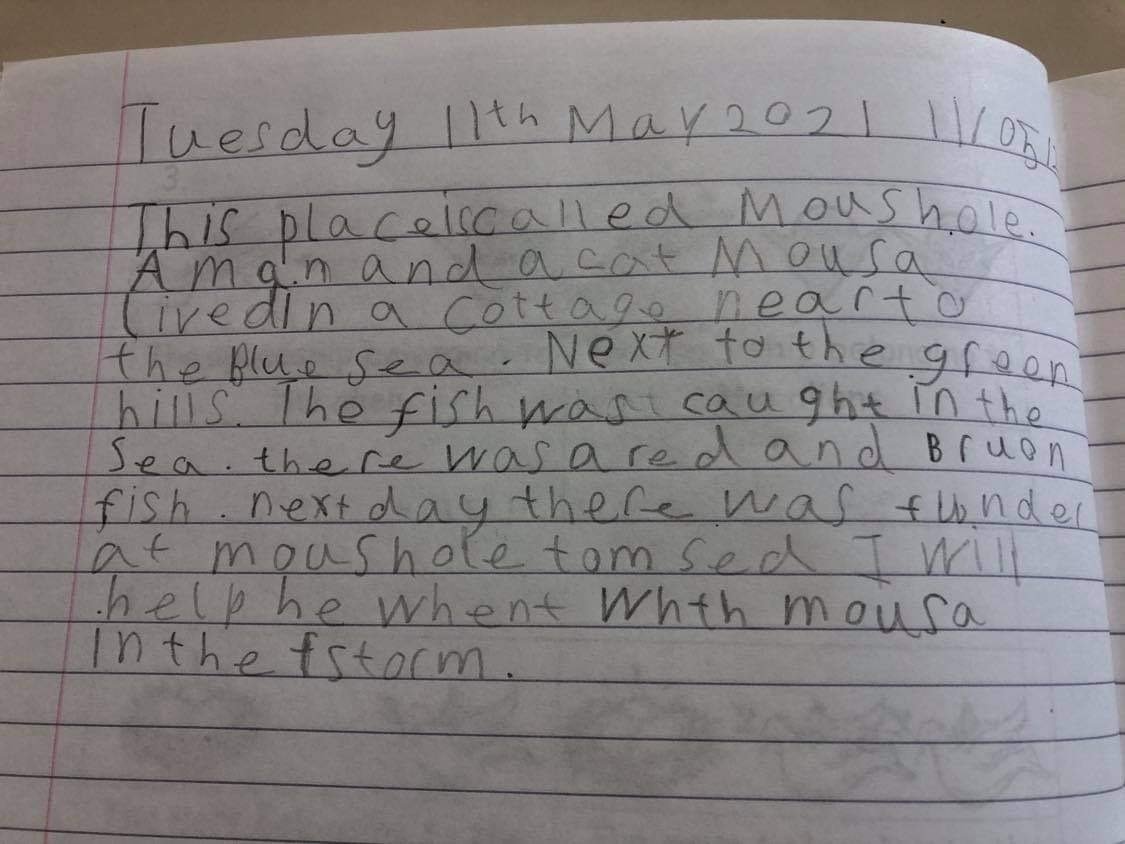 Tuesday 11th May 2021 11/05/
This place is called Moushole.
A man and a cat Mousa
lived in a cottage near to
the Blue sea. Next to the green
hills. The fish was caught in the
Sea. there was a red and Bruon
fish. next day there was funder
at moushole tom sed I will
help he whent whth mousa
in the fstorm.